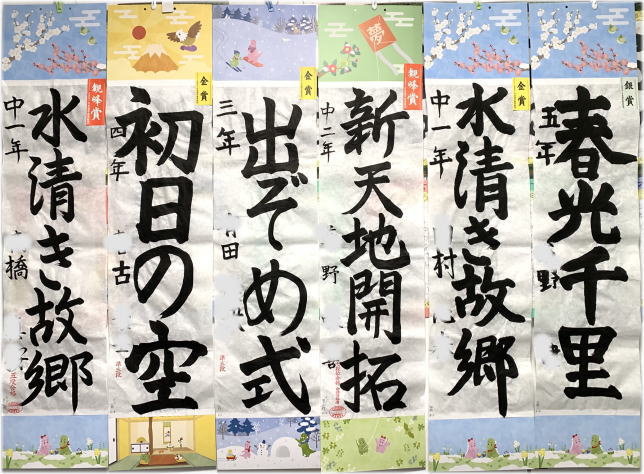 銀賞
春光千里
五年
野
金賞
水清き故郷
中一年
村
観峰賞
夢
新天地開拓
中二年
野
金賞
出ぞめ式
三年
田
金賞
初日の空
四年
古
観峰賞
水清き故郷
中一年
橋